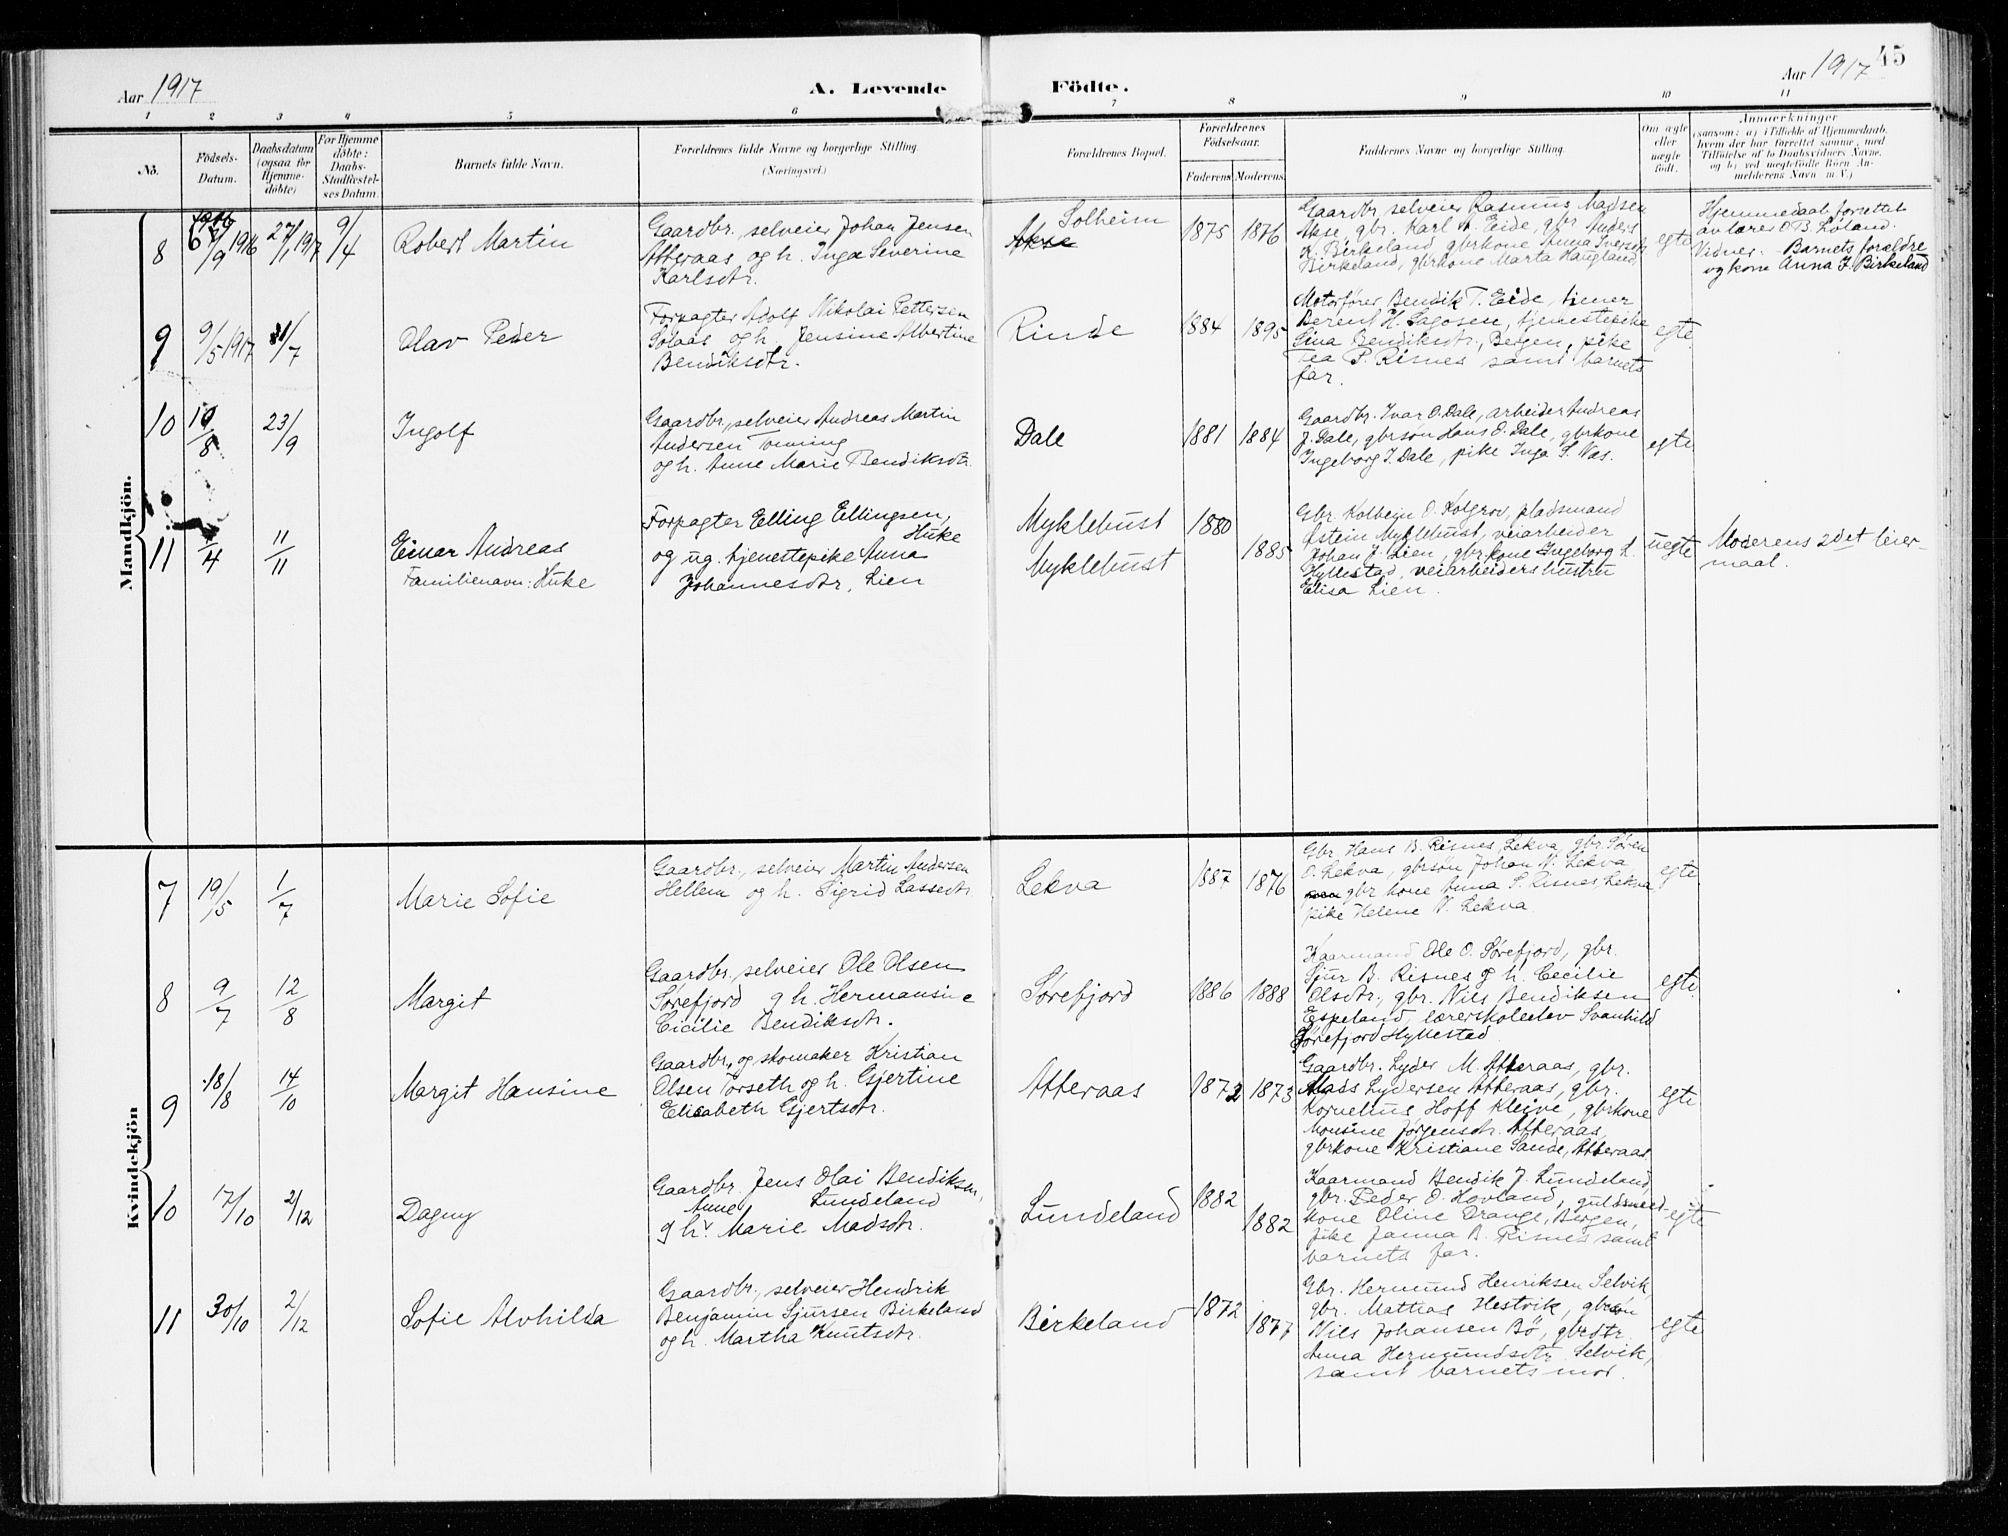 Aar 1917
A. Levende Födte.
Aar 1917
45
1 2 3 4 5 6 7 8 9 10 11
No.
Födsels-
Datum.
Daabsdatum
(ogsaa for
Hjemme-
döbte)
For Hjemme
döbte:
Daabs-
Stadfæstel-
ses Datum.
Barnets fulde Navn.
Forældrenes fulde Navne og borgerlige Stilling.
(Næringsvei.)
Forældrenes Bopæl.
Forældrenes
Födselsaar.
Faderens.
Moderens.
Faddernes Navne og borgerlige Stilling.
Om ægte
eller
uægte
födt.
Anmærkninger
(saasom: a) i Tilfælde af Hjemmedaab,
hvem der har forrettet samme, med
Tilföielse af to Daabsvidners Navne,
og b) ved uægtefödte Börn An-
melderens Navn m. V.)
Mandkjön.
8
/9 1916
27/1 1917
9/4
Robert Martin
Gaardbr., selveier Johan Jensen
Atteraas og h. Inga Severine
Karlsdtr.
Solheim
Akse
1875
1876
Gaardbr. selveier Rasmus Madsen
Akse, gbr. Karl A. Eide, gbr. Anders
K. Birkeland, gbrkone Anna Iversdtr.
Birkeland, gbrkone Marta Haugland
egte
Hjemmedaab forrettet
av lærer O. B. Loland.
Vidner: Barnets forældre
og kone Anna J. Birkeland
9
9/5 1917
31/7
Olav Peder
Forpagter Adolf Nikolai Pettersen
Solaas og h. Jensine Albertine
Bendiksdtr.
Rinde
1884
1895
Motorfører Bendik T. Eide, tjener
Berent H. Sagosen, tjenestepike
Lina Bendiksdtr., Bergen, pike
Tea P. Risnes samt barnets
far.
egte
10
10/8
23/9
Ingolf
Gaardbr., selveier Andreas Martin
Andersen Tveming
og h. Anne Marie Bendiksdtr.
Dale
1881
1884
Gaardbr. Ivar O. Dale, arbeider Andreas
J. Dale, gbrsøn Hans O. Dale, gbrkone
Ingeborg J. Dale, pike Inga S. Næs.
egte
11
/4
11/11
Einar Andreas
Familienavn: Huke
Forpagter Elling Ellingsen,
Huke
og ug. tjenestepike Anna
Johannesdtr. Lien
Myklebust
Myklebust
1880
1885
Gbr. Kolbein O. Kolgrov, pladsmand
Østein Myklebust, veiarbeider
Johan J. Lien, gbrkone Ingeborg L.
Hyllestad, veiarbeiders hustru
Elisa Lien.
uegte
Moderens 2det leier-
maal.
Kvindekjön
7
19/5
1/7
Marie Sofie
Gaardbr., selveier Martin Andersen
Hellem og h. Sigrid Lassedtr.
Lekva
1887
1876
Gbr. Hans B. Risnes, Lekva, gbr. Søren
O. Lekva, gbrsøn Johan N. Lekva
gbrkone Anna S. Risnes Lekva
pike Helene N. Lekva
egte.
8
9/7
12/8
Margit
Gaardbr., selveier Ole Olsen
Sørefjord og h. Hermansine
Cicilie Bendiksdtr.
Sørefjord
1886
1888
Kaarmand Ole O. Sørefjord, gbr.
Sjur B. Risnes og h. Cecilie
Olsdtr., gbr. Nils Bendiksen
Espeland, lærerskoleelev Svanhild
Sørefjord Hyllestad
egte.
9
18/8
14/10
Margit Hansine
Gaardbr. og skomaker Kristian
Olsen Torseth og h. Gjertine
Elisabeth Gjertsdtr.
Atteraas
1872
1873
Gaardbr. Lyder M. Atteraas, gbr.
Mads Lydersen Atteraas, gbr.
Kornelius Hoff Kleive, gbrkone
Monsine Jørgensdtr. Atteraas,
gbrkone Kristiane Sande, Atteraas
egte.
10
17/10
2/12
Dagny
Gaardbr. Jens Olai Bendiksen,
Anne Lundeland
og h. Marie Madsdtr.
Lundeland
1882
1882
Kaarmand Bendik J. Lundeland,
gbr. Peder O. Hovland, guldsmed-
kone Oline Drange, Bergen,
pike Janna B. Risnes samt
barnets far.
egte
11
30/10
2/12
Sofie Alvhilda
Gaardbr., selveier Hendrik
Benjamin Sjursen Birkeland
og h. Martha Knutsdtr.
Birkeland
1872
1877
Gbr. Hermund Henriksen Selvik,
gbr. Mathias Hestvik, gbrsøn
Nils Johansen Bø, gbrdtr.
Anna Hermundsdtr. Selvik,
samt barnets mor.
egte